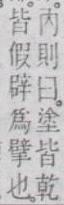 内則曰。塗皆乾
皆假辟爲擘也。